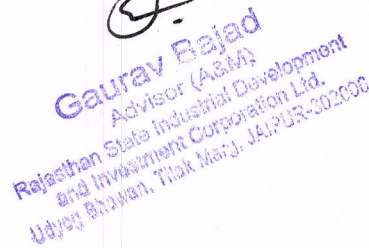 Gaurav Bajad
Advisor (A&M)
Rajasthan State Industrial Development
and Investment Corporation Ltd.
Udyog Bhawan, Tilak Marg, JAIPUR-302000